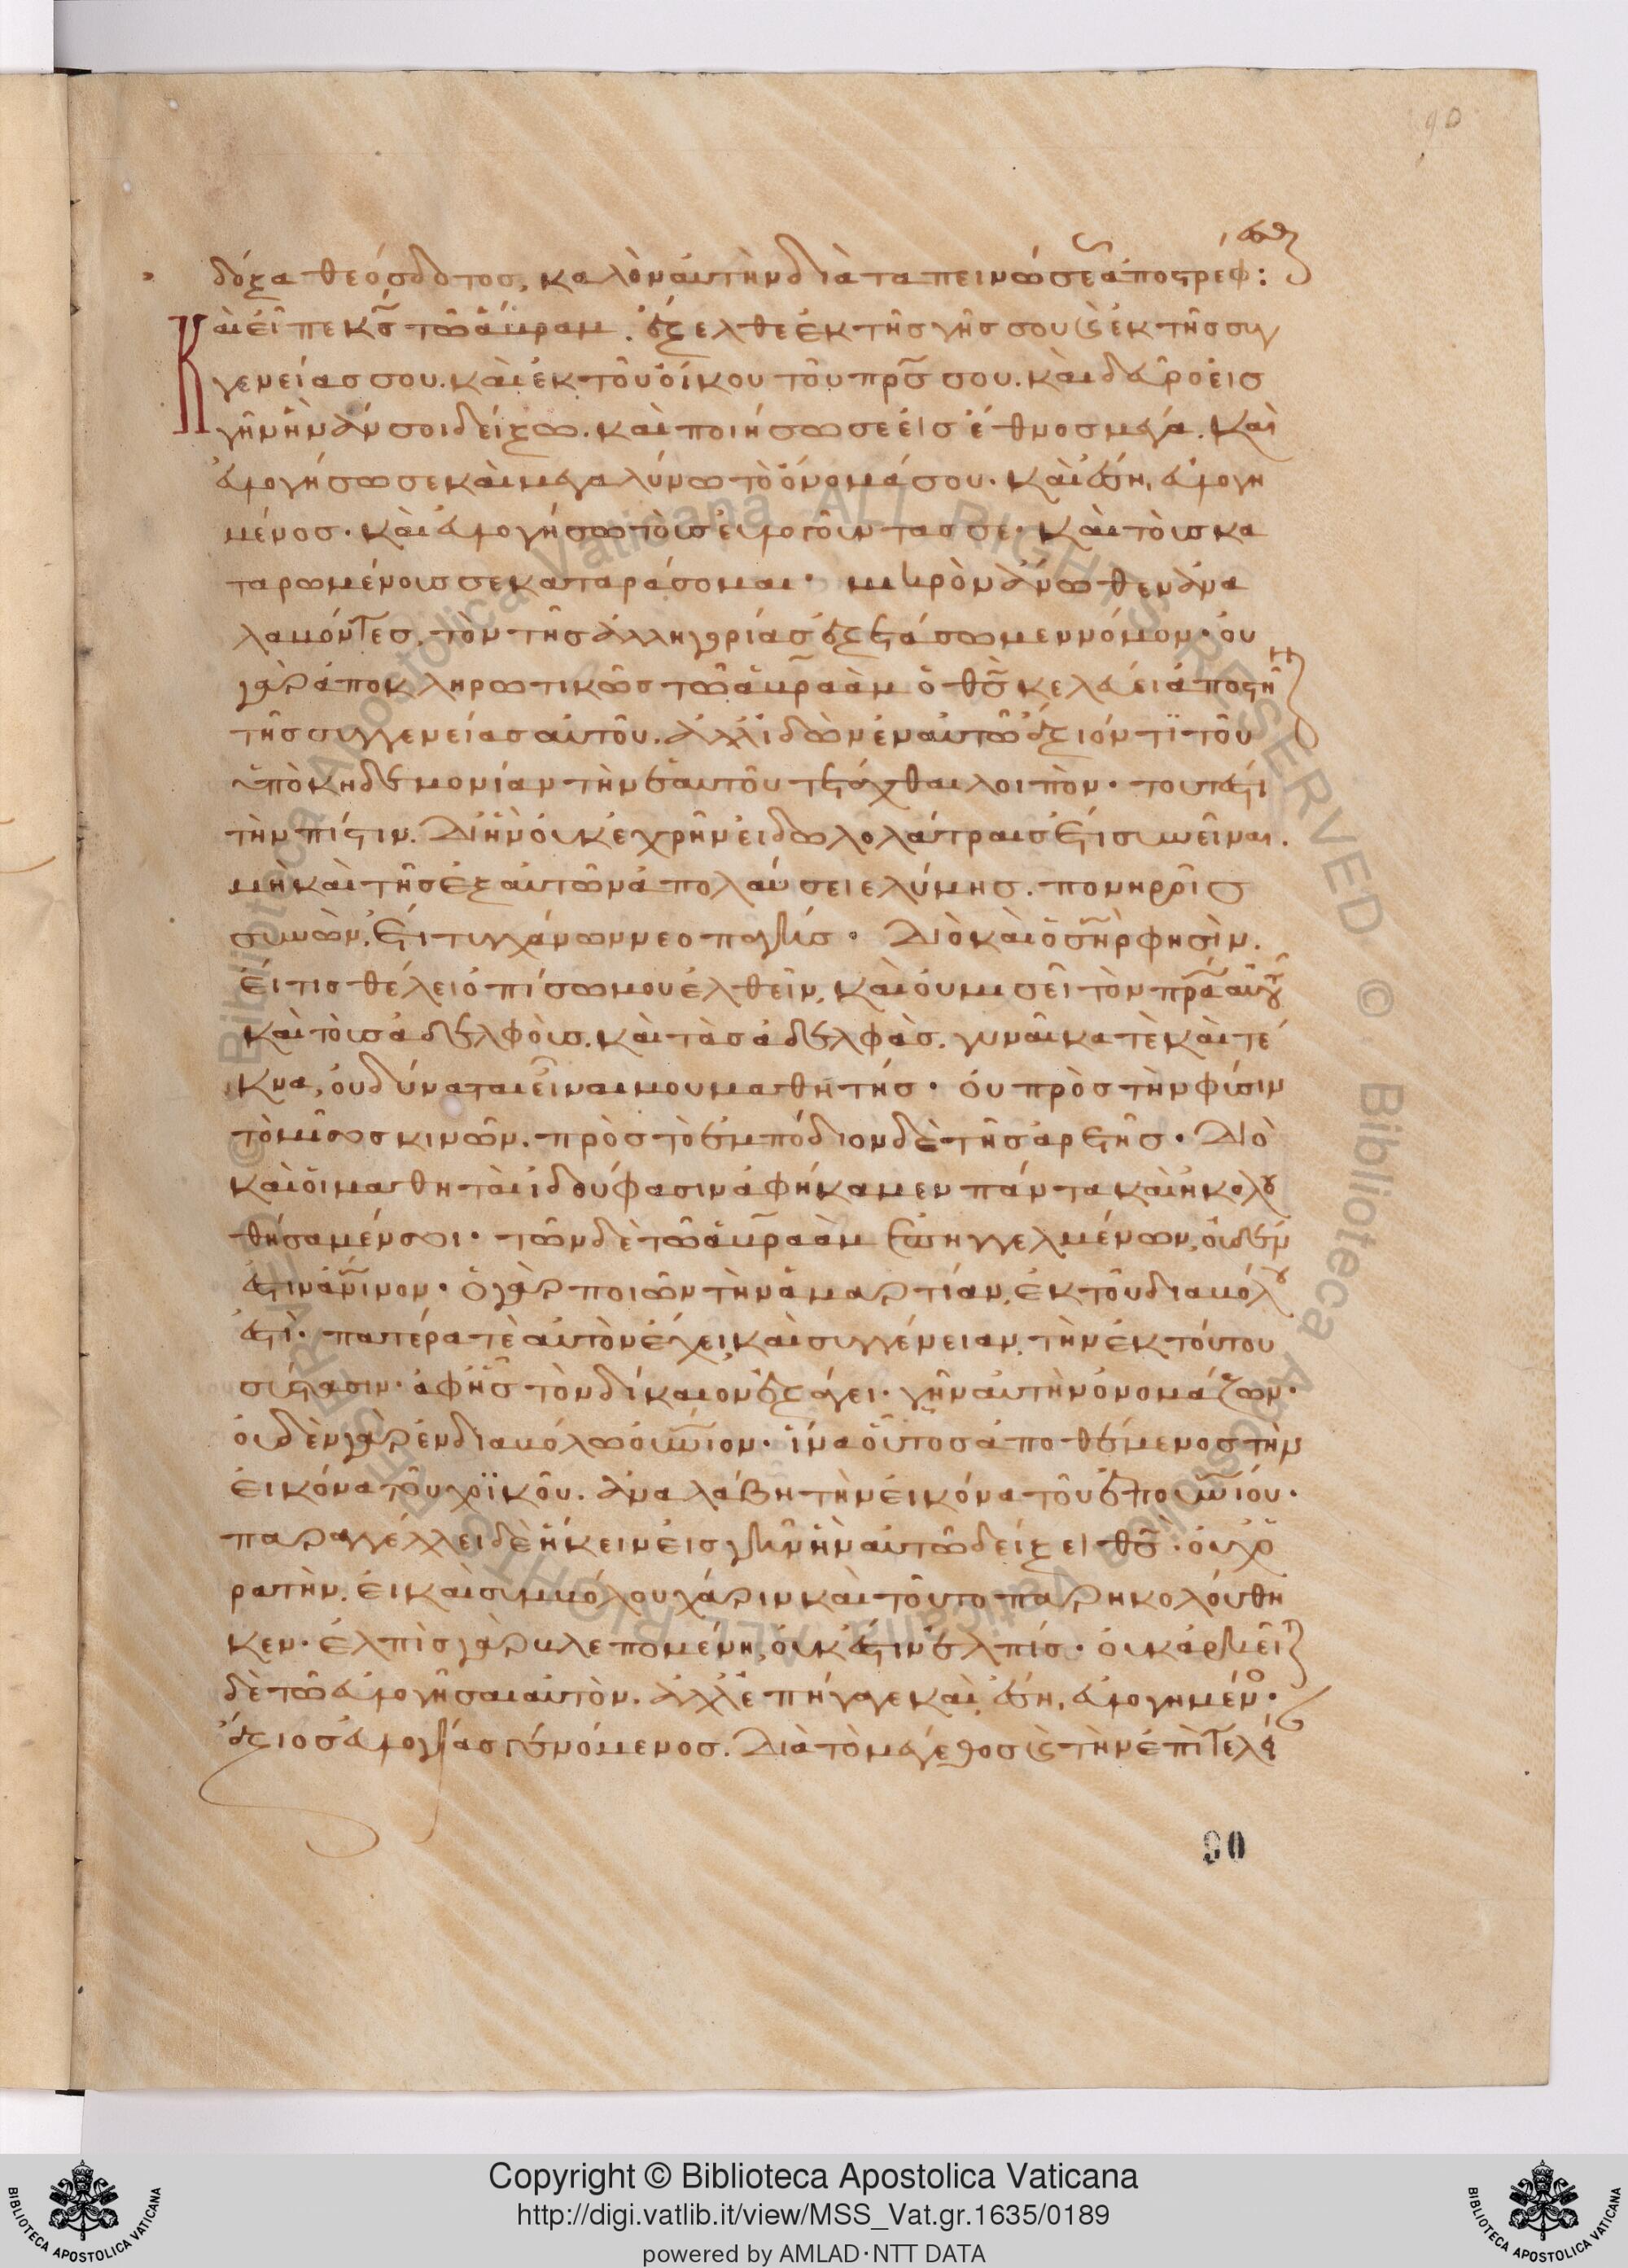 90
δόξα θεόσδοτος, καλὸν αὐτὴν διὰ ταπεινώσεως ἀποστρέφεσθαι:
Καὶ εἶπε κ̅ς̅ τῶ ἄβραμ. ἔξελθε ἐκ τῆς γῆς σου καὶ ἐκ τῆς συγ
γενείας σου. καὶ ἐκ τοῦ οἴκου τοῦ π̅ρ̅ς̅ σου. καὶ δεῦρο εἰς
γῆν ἣν ἄν σοι δείξω. καὶ ποιήσω σε εἰς ἔθνος μέγα. καὶ
εὐλογήσω σε καὶ μεγαλύνω τὸ ὄνομά σου. καὶ ἔση εὐλογη
μένος. καὶ εὐλογήσω τοὺς εὐλογοῦντας σε. καὶ τοὺς κα
ταρωμένους σε καταράσομαι. μικρὸν ἄνωθεν ἀνα
λαβόντες, τὸν τῆς ἀλληγορίας ἐξετάσωμεν νόμον. οὐ
γὰρ ἀποκληρωτικῶς τῶ ἀβραὰμ ὁ θ̅ς̅ κελεύει ἀποστῆναι
τῆς συγγενείας αὐτοῦ. ἀλλ' ἰδὼν ἐν αὐτῶ ἄξιόν τι τοῦ
ὑπὸ κηδεμονίαν τὴν ἑαυτοῦ τετάχθαι λοιπὸν. τουτέστι
τὴν πίστιν. Δι' ἣν οὐκ ἐχρῆν εἰδωλολάτραις ἔτι συνεῖναι.
μὴ καὶ τῆς ἐξ αὐτῶν ἀπολαύσειε λύμης. πονηροῖς
συνὼν, ἔτι τυγχάνων νεοπαγής. Διὸ καὶ ὁ σ̅η̅ρ̅ φησὶν.
εἴ τις θέλει ὀπίσω μου ἐλθεῖν, καὶ οὐ μισεῖ τὸν π̅ρ̅α̅ αὐτοῦ
καὶ τοὺς ἀδελφοὺς. καὶ τὰς ἀδελφὰς. γυναῖκα τὲ καὶ τέ
κνα, οὐ δύναται εἶναι μου μαθητής. οὐ πρὸς τὴν φύσιν
τὸ μῖσος κινῶν. πρὸς τὸ ἐμπόδιον δὲ τῆς ἀρετῆς. Διὸ
καὶ οἱ μαθηταὶ ἰδού φασιν ἀφήκαμεν πάντα καὶ ἠκολου
θήσαμέν σοι. τῶν δὲ τῶ ἀβραὰμ ἐπηγγελμένων, οὐδέν
ἐστιν ἀ̅ν̅ινον. ὁ γὰρ ποιῶν τὴν ἁμαρτίαν, ἐκ τοῦ διαβόλου
ἐστὶ. πατέρα τὲ αὐτὸν ἔχει καὶ συγγένειαν, τὴν ἐκ τούτου
σύστασιν. ἀφ' ἧς τὸν δίκαιον ἐξάγει. γῆν αὐτὴν ὀνομάζων.
οὐδὲν γὰρ ἐν διαβόλω ο̅υ̅ν̅ιον. ἵνα οὗτος ἀποθέμενος τὴν
εἰκόνα τοῦ χοϊκοῦ. ἀναλάβη τὴν εἰκόνα τοῦ ἐπο̅υ̅ν̅ίου.
παραγγέλλει δὲ ἥκειν εἰς γῆν ἣν αὐτῶ δείξει θ̅ς̅. οὐχ ὁ
ρατὴν, εἰ καὶ συμβόλου χάριν καὶ τοῦτο παρηκολούθη
κεν. ἐλπὶς γὰρ βλεπομένη, οὐκ ἔστιν ἐλπίς. οὐκ ἀρκεῖται
δὲ τῶ εὐλογῆσαι αὐτὸν. ἀλλ' ἐπήγαγε καὶ ἔση εὐλογημένος.
ἄξιος εὐλογίας γενόμενος. Διὰ τὸ μέγεθος καὶ τὴν ἐπὶ τελεί
90
Copyright © Biblioteca Apostolica Vaticana
http://digi.vatlib.it/view/MSS_Vat.gr.1635/0189
powered by AMLAD·NTT DATA
BIBLIOTECA APOSTOLICA VATICANA
BIBLIOTECA APOSTOLICA VATICANA